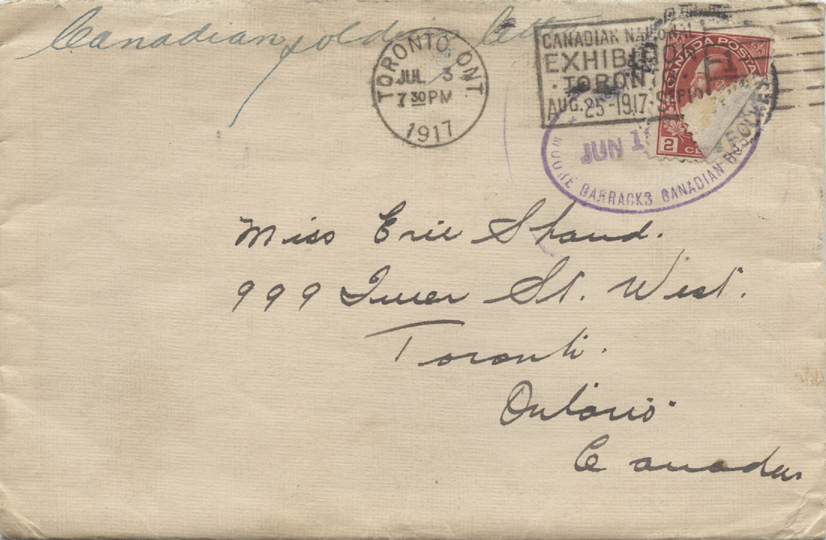 Canadian soldiers letter
TORONTO, ONT
JUL 3
7 30 PM
1917
CANADIAN NATIONAL
EXHIBITION
TORONTO
AUG. 25-1917-SEP 10
CANADA POSTA
2 CE
JUN 1
MOORE BARRACKS CANADIAN HOS
Miss Erie Shand.
999 Queen St. West.
Toronto.
Ontario
Canada